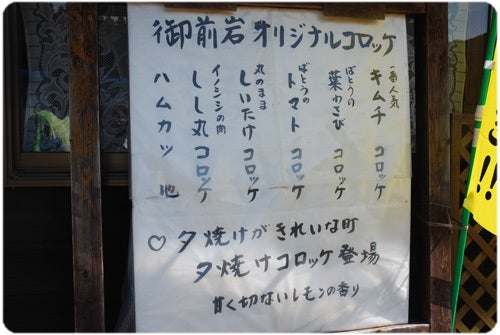 御前岩オリジナルコロッケ
一番人気
キムチ コロッケ
ばとうの
葉わさび コロッケ
ばとうの
トマト コロッケ
丸のまま
しいたけ コロッケ
イノシシの肉
しし丸 コロッケ
ハムカツ 他
♡夕焼けがきれいな町
夕焼けコロッケ登場
甘く切ないレモンの香り
!!